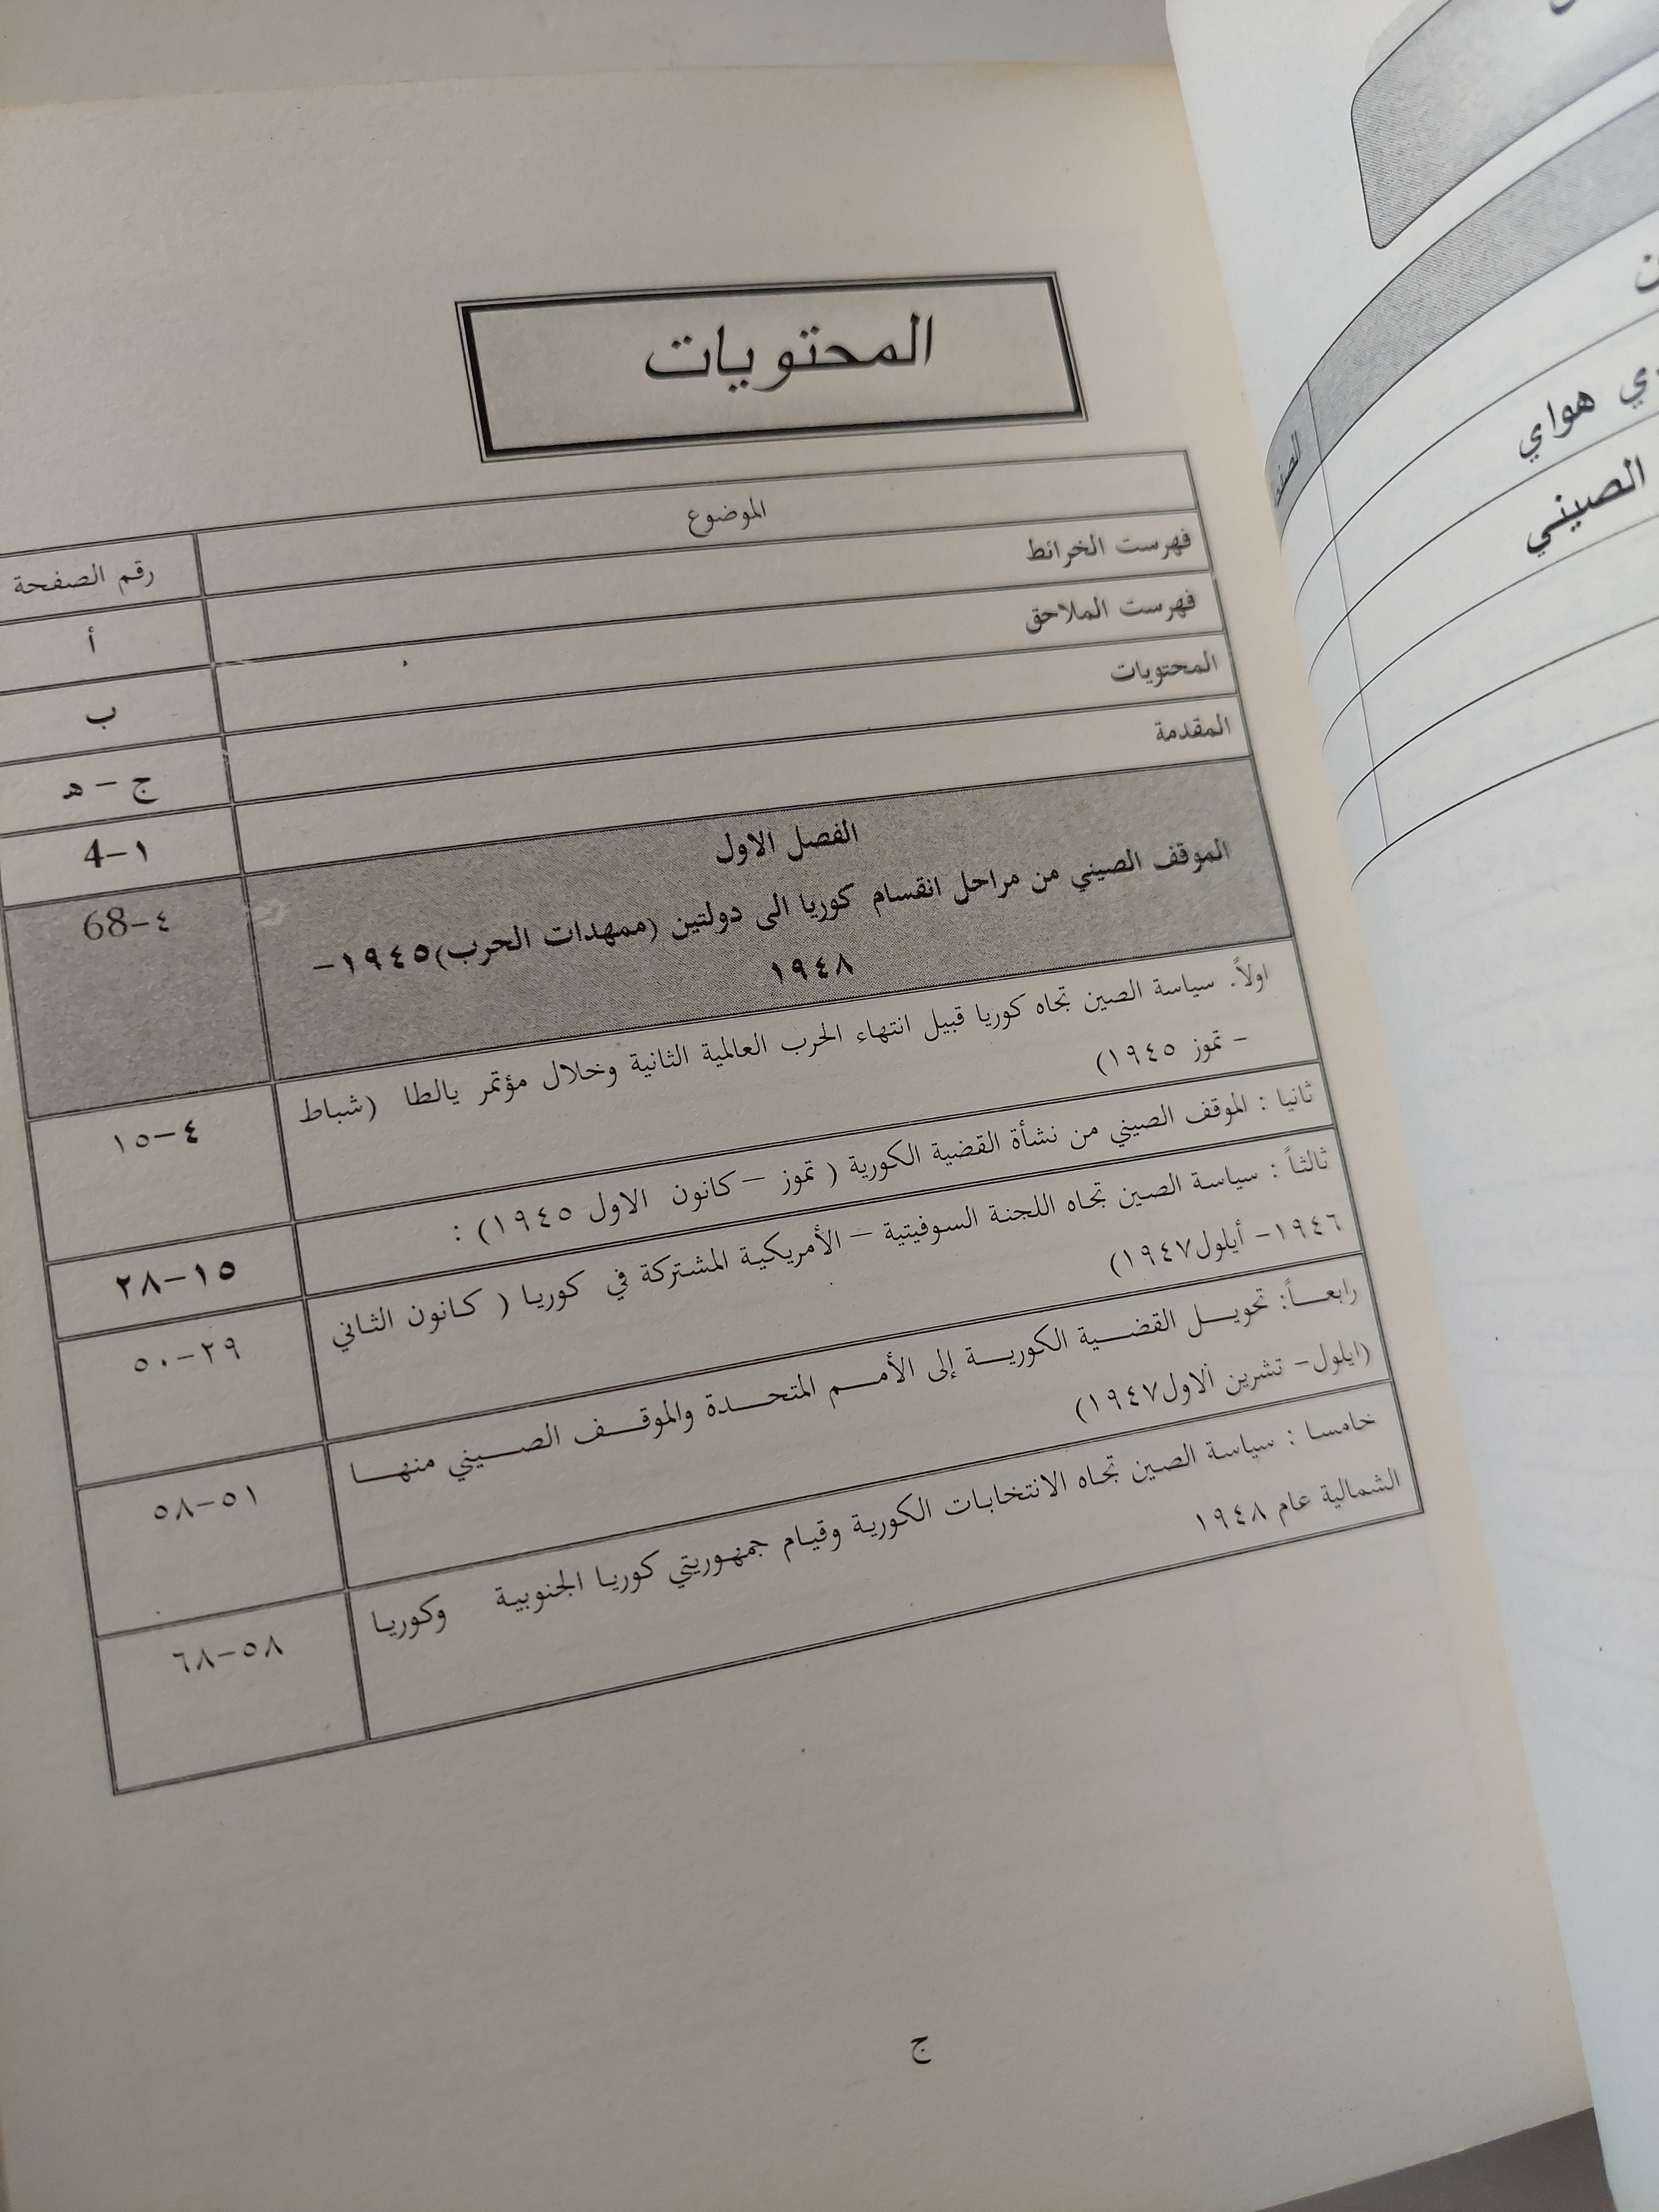 المحتويات
الموضوع
رقم الصفحة
فهرست الخرائط
أ
فهرست الملاحق
ب
المحتويات
ج – هـ
المقدمة
١–4
الفصل الاول
الموقف الصيني من مراحل انقسام كوريا الى دولتين (ممهدات الحرب)١٩٤٥–
١٩٤٨
٤–68
اولاً. سياسة الصين تجاه كوريا قبيل انتهاء الحرب العالمية الثانية وخلال مؤتمر يالطا (شباط
– تموز ١٩٤٥)
٤–١٥
ثانيا : الموقف الصيني من نشأة القضية الكورية ( تموز – كانون الاول ١٩٤٥) :
١٥–٢٨
ثالثاً : سياسة الصين تجاه اللجنة السوفيتية – الأمريكية المشتركة في كوريا ( كانون الثاني
١٩٤٦– أيلول١٩٤٧)
٢٩–٥٠
رابعـــاً: تحويـــل القضـــية الكوريـــة إلى الأمـــم المتحـــدة والموقـــف الصـــيني منهـــا
(ايلول– تشرين الاول١٩٤٧)
٥١–٥٨
خامسا : سياسة الصين تجاه الانتخابات الكورية وقيام جمهوريتي كوريا الجنوبية وكوريا
الشمالية عام ١٩٤٨
٥٨–٦٨
ج
هواي
الصيني